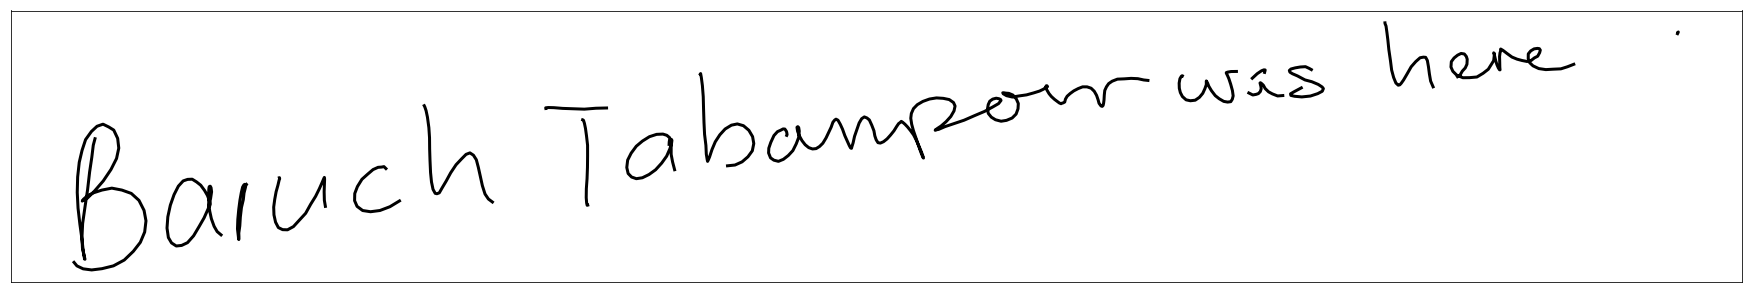 Baruch Tabanpour was here .